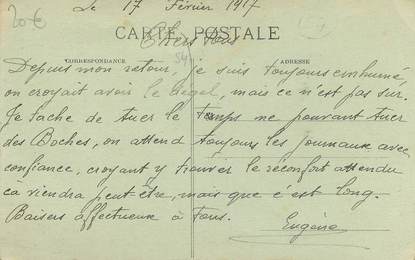 20€
Le 17 Février 1917
CARTE POSTALE
Chers tous
CORRESPONDANCE ADRESSE
Depuis mon retour, je suis toujours enrhumé,
on croyait avoir le dégel, mais ce n'est pas sur.
Je tache de tuer le temps ne pouvant tuer
des Boches, on attend toujours les journaux avec
confiance, croyant y trouver le réconfort attendu
cà viendra peut-être, mais que c'est long.
Baisers affectueux à tous.
Eugène